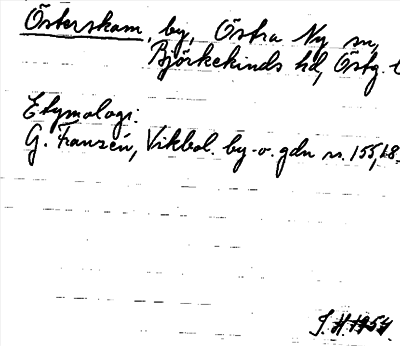 Österskam, by, Östra Ny sn,
Björkekinds hd, Östg. l
Etymologi:
G. Franzén, Vikbol. by- o. gdn n. 155, 68.
J. H. 1954.